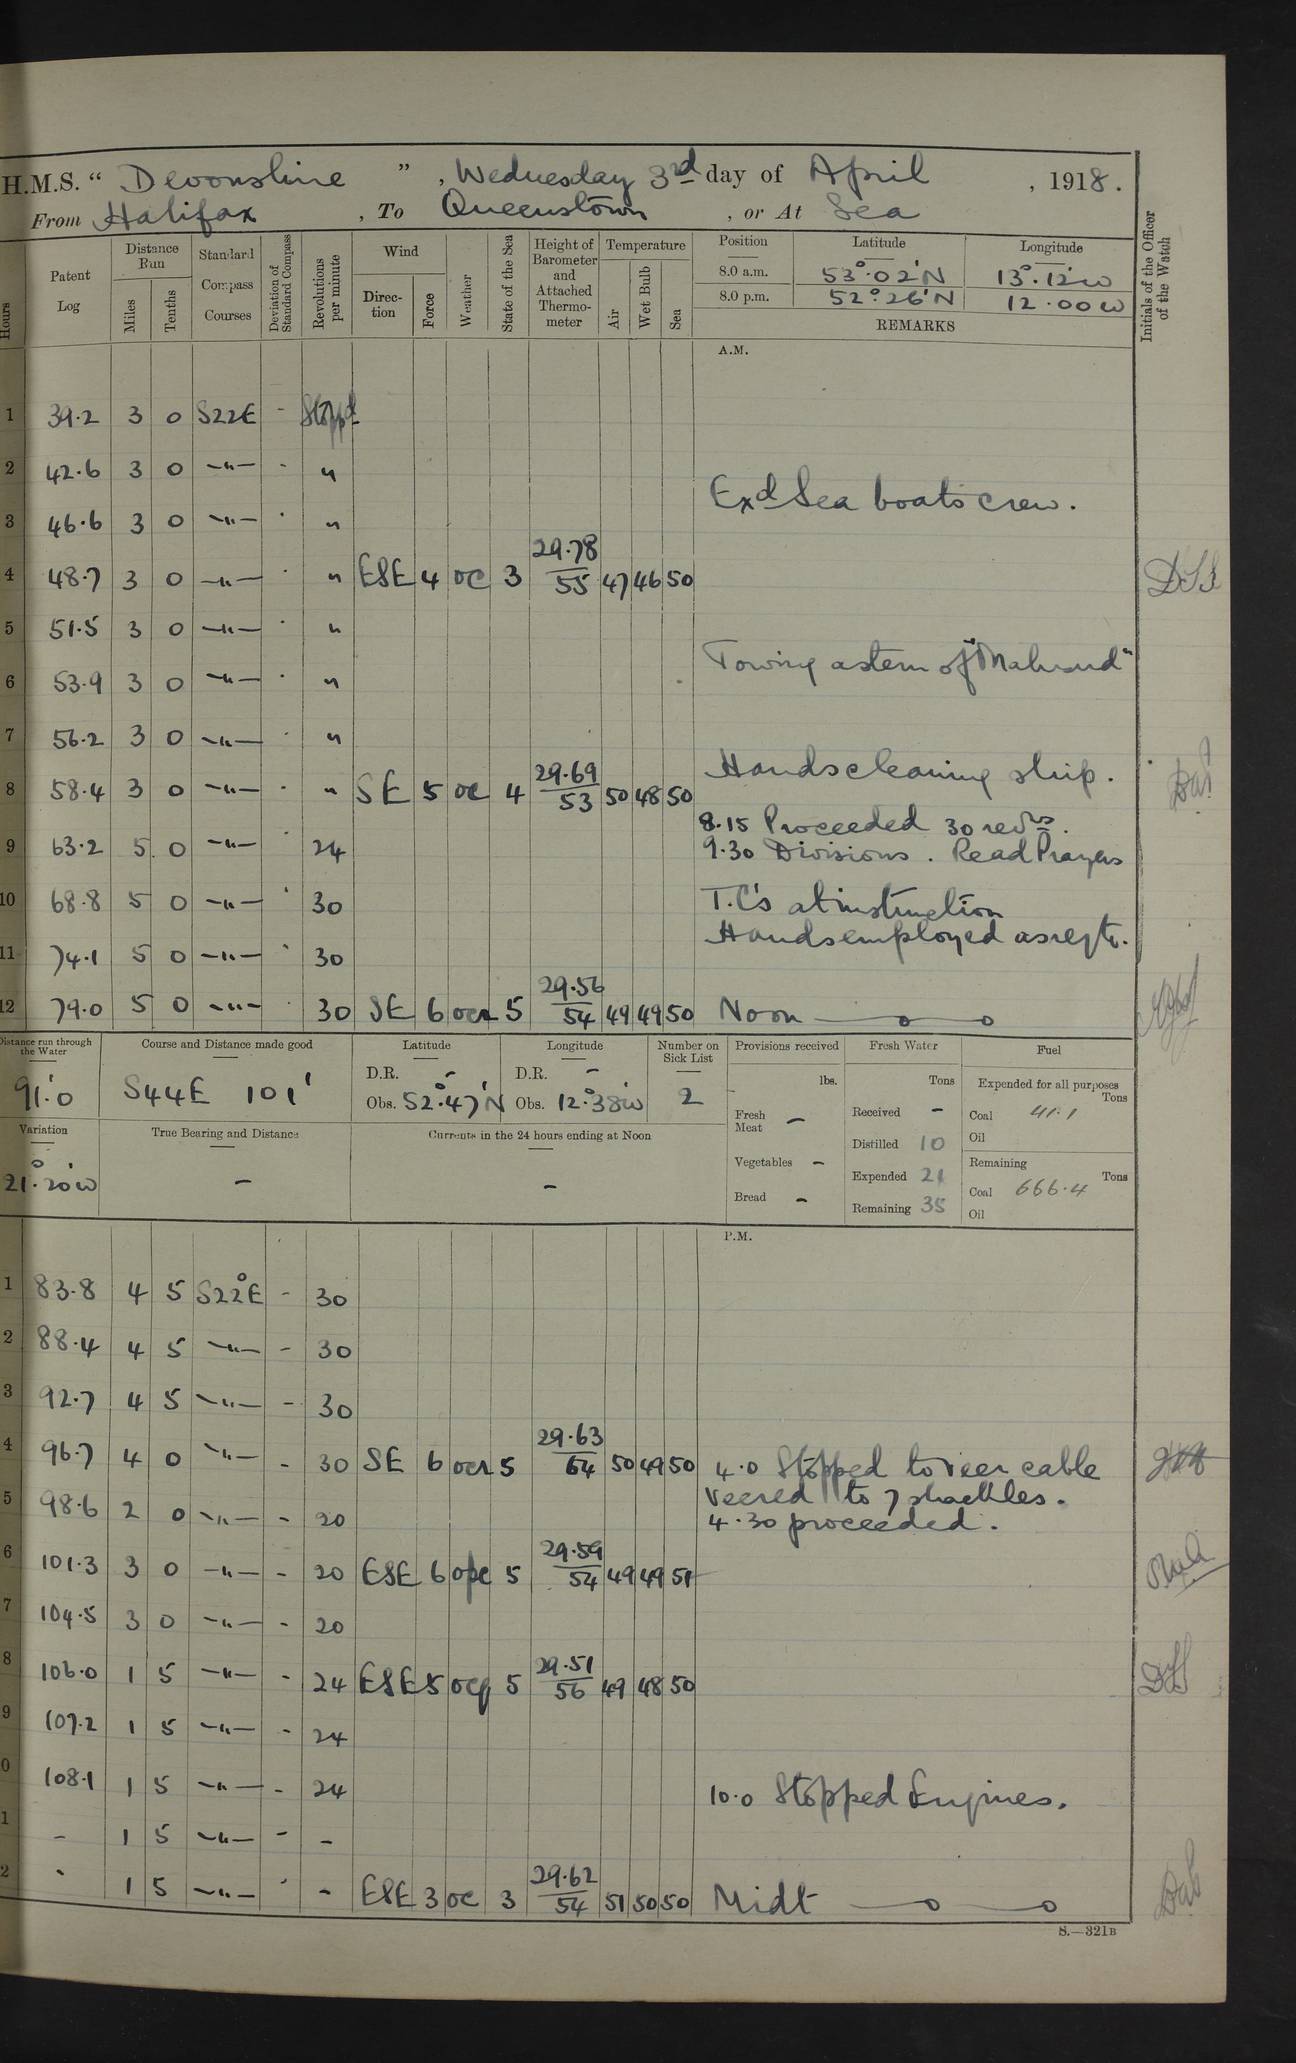 H.M.S. “ Devonshire ” , Wednesday 3rd day of April , 1918.
From Halifax , To Queenstown , or At Sea
Hours
Patent Log
Distance Run
Miles
Tenths
Standard Compass Courses
Deviation of Standard Compass
Revolutions per minute
Wind
Direction
Force
Weather
State of the Sea
Height of Barometer and Attached Thermometer
Temperature
Air
Wet Bulb
Sea
Position Latitude Longitude
8.0 a.m. 53°.02'N 13°.12'W
8.0 p.m. 52°.26'N 12.00W
REMARKS
Initials of the Officer of the Watch
A.M.
1 39.2 3 0 S22E - Stoppd
2 42.6 3 0 —"— - "
Exd Sea boats crew.
3 46.6 3 0 —"— - "
4 48.7 3 0 —"— - " ESE 4 oc 3 29.78/55 47 46 50
5 51.5 3 0 —"— - "
Towing astern of
6 53.9 3 0 —"— - "
7 56.2 3 0 —"— - "
Hands cleaning ship.
8 58.4 3 0 —"— - " SE 5 oc 4 29.69/53 50 48 50
8.15 Proceeded 30 revs.
9 63.2 5 0 —"— 24 9.30 Divisions. Read Prayers
10 68.8 5 0 —"— - 30 T.C's at instruction
Hands employed as reqte.
11 74.1 5 0 —"— - 30
12 79.0 5 0 —"— - 30 SE 6 ocr 5 29.56/54 49 49 50 Noon
Distance run through the Water
91.'0
Course and Distance made good
S44E 101'
Latitude
D.R. -
Obs. 52°.47'N
Longitude
D.R. -
Obs. 12°.38'W
Number on Sick List
2
Provisions received
lbs.
Fresh Meat —
Vegetables —
Bread -
Fresh Water
Tons
Received -
Distilled 10
Expended 21
Remaining 35
Fuel
Expended for all purposes
Tons
Coal 41.1
Oil
Remaining
Tons
Coal 666.4
Oil
Variation
21°.20'W
True Bearing and Distance
-
Currents in the 24 hours ending at Noon
-
P.M.
1 83.8 4 5 S22°E - 30
2 88.4 4 5 —"— - 30
3 92.7 4 5 —"— - 30
4 96.7 4 0 —"— - 30 SE 6 ocr 5 29.63/64 50 49 50 4.0 Stopped to veer cable
Veered to 7 shackles.
5 98.6 2 0 —"— - 20 4.30 proceeded.
6 101.3 3 0 —"— - 20 ESE 6 opc 5 29.59/54 49 49 51
7 104.5 3 0 —"— - 20
8 106.0 1 5 —"— - 24 ESE 5 ocq 5 29.51/56 49 48 50
9 107.2 1 5 —"— - 24
0 108.1 1 5 —"— - 24 10.0 Stopped Engines.
1 - 1 5 —"— - -
2 - 1 5 —"— - - ESE 3 oc 3 29.62/54 51 50 50 Midt
S.—321B